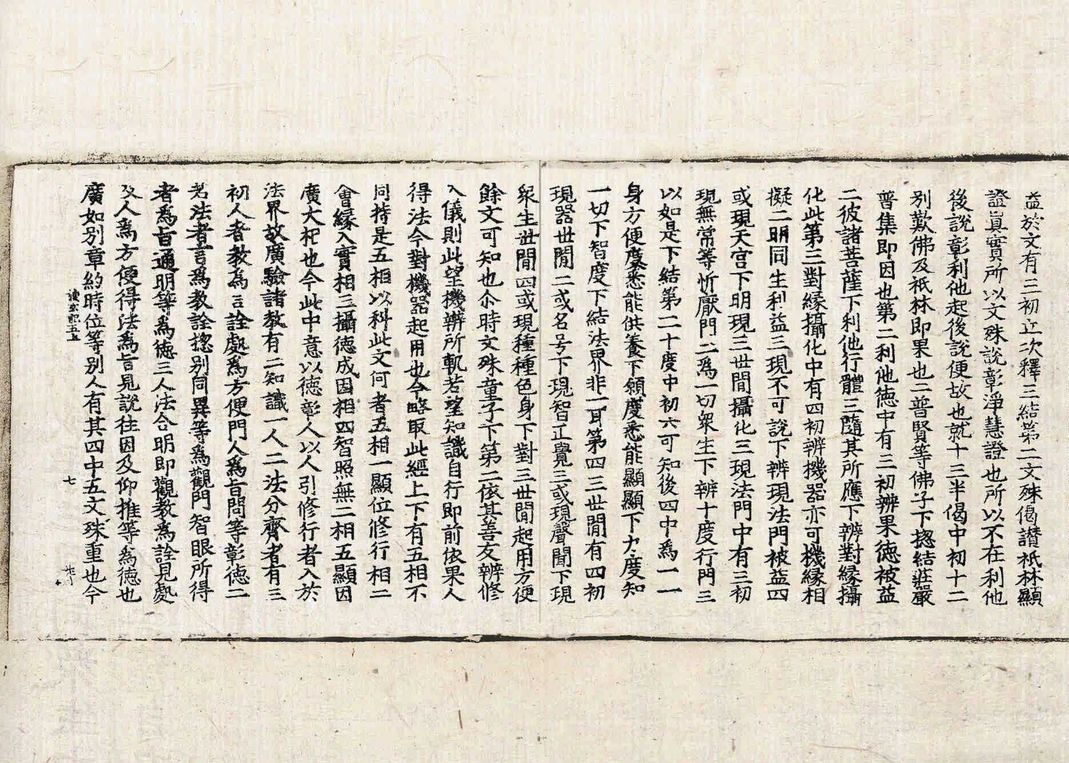 益於文有三初立次釋三結第二文殊偈讃祇林顯
證眞實所以文殊說彰淨慧證也所以不在利他
後說彰利他起後說便故也就十三半偈中初十二
別歎佛及祇林即果也二普賢等佛子下揔結莊嚴
普集即因也第二利他德中有三初辨果德被益
二彼諸菩薩下利他行體三隨其所應下辨對縁攝
化此第三對縁攝化中有四初辨機器亦可機縁相
擬二明同生利益三現不可說下辨現法門被益四
或現天宫下明現三世間攝化三現法門中有三初
現無常等忻厭門二爲一切衆生下辨十度行門三
以如是下結第二十度中初六可知後四中爲一一
身方便度悉能供養下願度悉能顯顯下力度知
一切下智度下結法界非一耳第四三世間有四初
現器世間二或名号下現智正覺三或現聲聞下現
衆生世間四或現種種色身下對三世間起用方便
餘文可知也尒時文殊童子下第二依其善友辨修
入儀則此望機辨所軌若望知識自行即前依果人
得法今對機器起用也今略取此經上下有五相不
同持是五相以科此文何者五相一顯位修行相二
會縁入實相三攝德成因相四智照無二相五顯因
廣大相也今此中意以德彰人以人引修行者入於
法界故廣驗諸教有二知識一人二法分齊者有三
初人者教爲言詮處爲方便門人爲旨問等彰德二
若法者言爲教詮揔别同異等爲觀門智眼所得
者爲旨通明等爲德三人法合明即觀教爲詮見處
及人爲方便得法爲旨見說往因及仰推等爲德也
廣如别章約時位等别人有其四中五文殊重也今
七